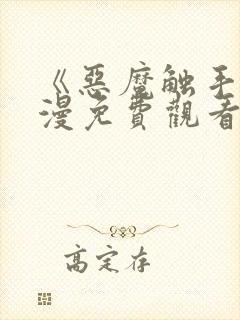 《惡魔触手
漫免費觀看
高定存